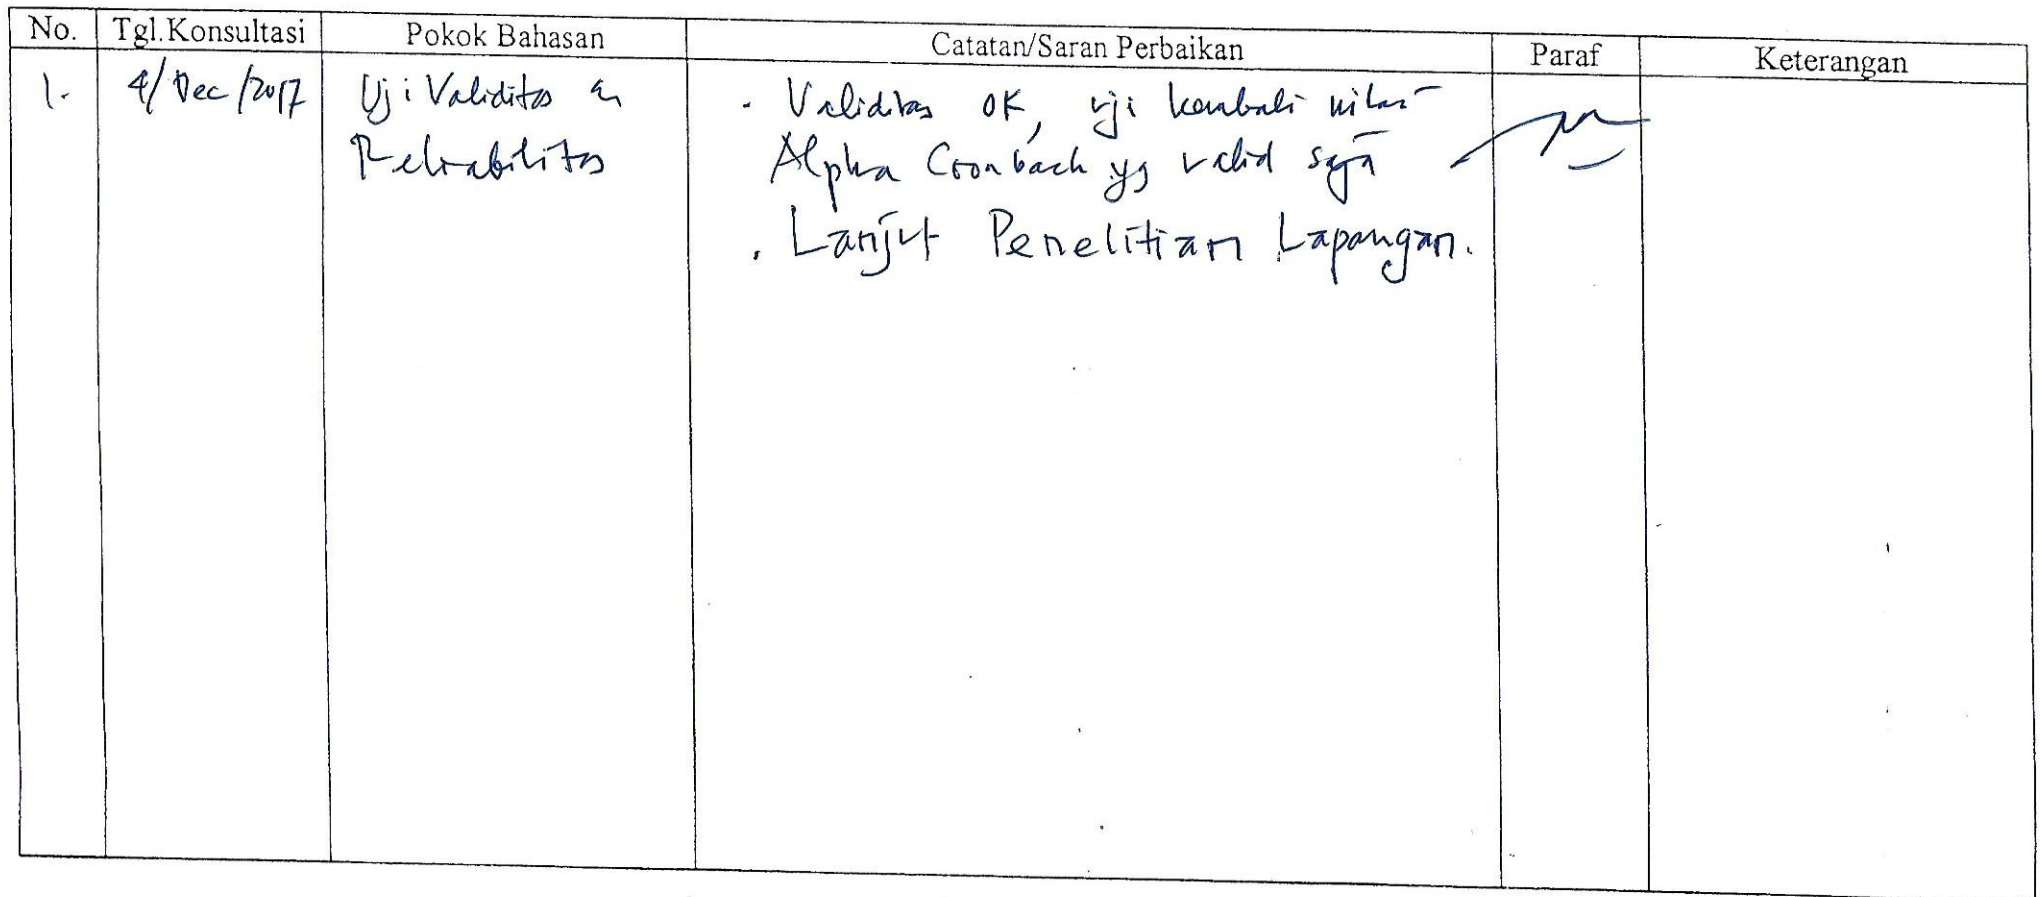 No. Tgl.Konsultasi Pokok Bahasan Catatan/Saran Perbaikan Paraf Keterangan
1. 4/Dec/2017 Uji Validitas & · Validitas OK, uji kembali nilai
Reliabilitas Alpha Cronbach yg valid saja
· Lanjut Penelitian Lapangan.